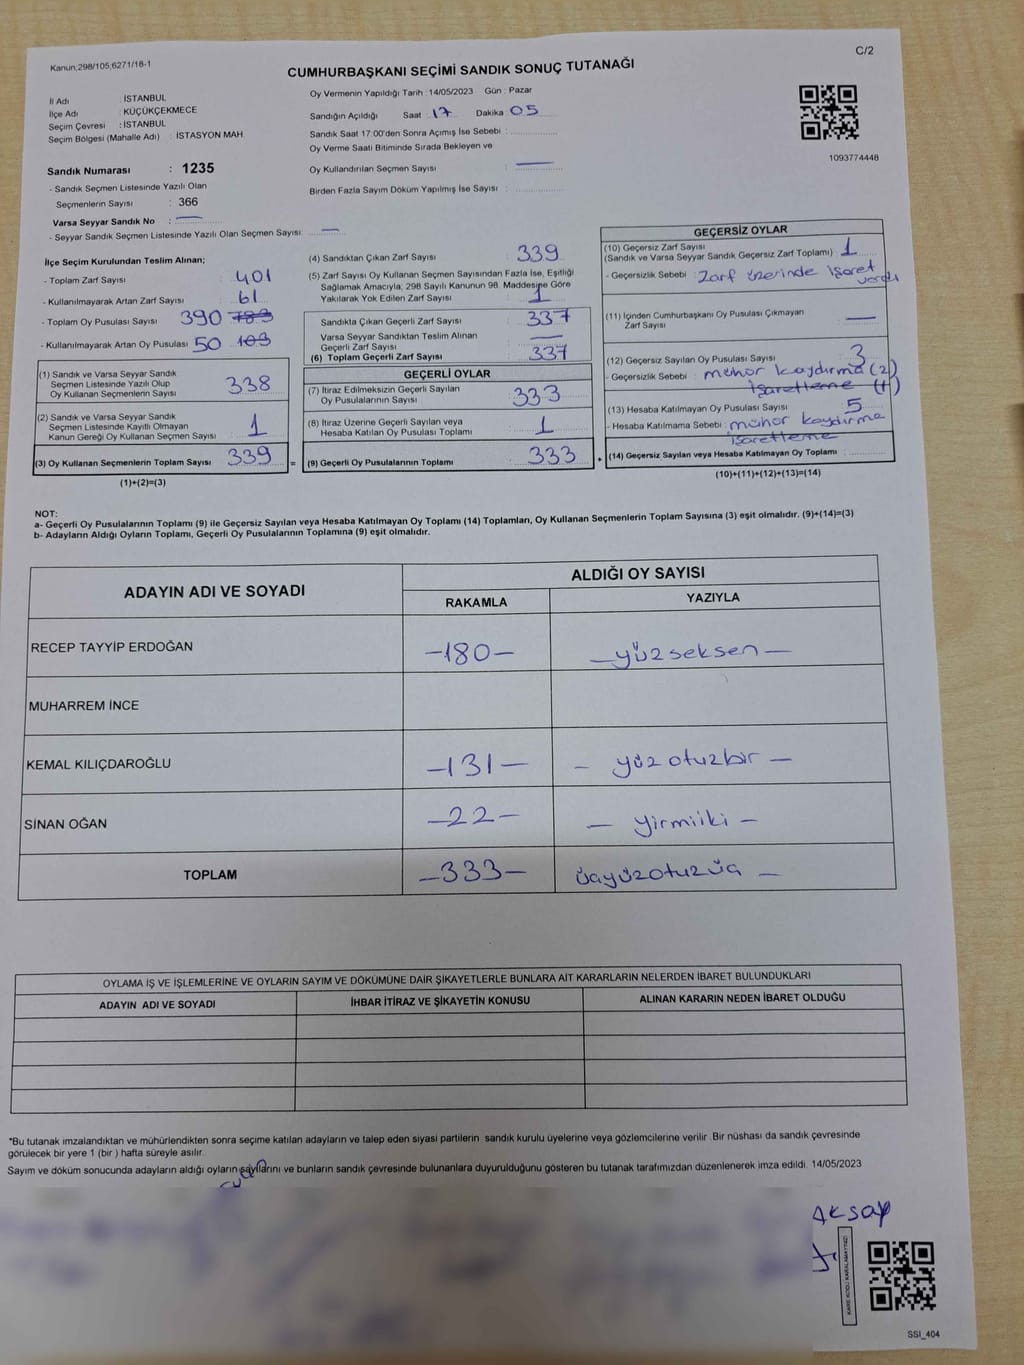 Kanun;298/105;6271/18-1
C/2
CUMHURBAŞKANI SEÇİMİ SANDIK SONUÇ TUTANAĞI
İl Adı : İSTANBUL
İlçe Adı : KÜÇÜKÇEKMECE
Seçim Çevresi : İSTANBUL
Seçim Bölgesi (Mahalle Adı) : İSTASYON MAH.
Sandık Numarası : 1235
- Sandık Seçmen Listesinde Yazılı Olan
Seçmenlerin Sayısı : 366
Varsa Seyyar Sandık No : —
- Seyyar Sandık Seçmen Listesinde Yazılı Olan Seçmen Sayısı: —
Oy Vermenin Yapıldığı Tarih : 14/05/2023 Gün : Pazar
Sandığın Açıldığı Saat 17 Dakika 05
Sandık Saat 17:00'den Sonra Açımış İse Sebebi :
Oy Verme Saati Bitiminde Sırada Bekleyen ve
Oy Kullandırılan Seçmen Sayısı : —
Birden Fazla Sayım Döküm Yapılmış İse Sayısı :
1093774448
İlçe Seçim Kurulundan Teslim Alınan;
- Toplam Zarf Sayısı 401
- Kullanılmayarak Artan Zarf Sayısı 61
- Toplam Oy Pusulası Sayısı 390 783
- Kullanılmayarak Artan Oy Pusulası 50 103
(1) Sandık ve Varsa Seyyar Sandık
Seçmen Listesinde Yazılı Olup
Oy Kullanan Seçmenlerin Sayısı 338
(2) Sandık ve Varsa Seyyar Sandık
Seçmen Listesinde Kayıtlı Olmayan
Kanun Gereği Oy Kullanan Seçmen Sayısı 1
(3) Oy Kullanan Seçmenlerin Toplam Sayısı 339 =
(1)+(2)=(3)
(4) Sandıktan Çıkan Zarf Sayısı 339
(5) Zarf Sayısı Oy Kullanan Seçmen Sayısından Fazla İse, Eşitliği
Sağlamak Amacıyla; 298 Sayılı Kanunun 98. Maddesine Göre
Yakılarak Yok Edilen Zarf Sayısı 1
Sandıkta Çıkan Geçerli Zarf Sayısı 337
Varsa Seyyar Sandıktan Teslim Alınan
Geçerli Zarf Sayısı —
(6) Toplam Geçerli Zarf Sayısı 337
GEÇERLİ OYLAR
(7) İtiraz Edilmeksizin Geçerli Sayılan
Oy Pusulalarının Sayısı 333
(8) İtiraz Üzerine Geçerli Sayılan veya
Hesaba Katılan Oy Pusulası Toplamı 1
(9) Geçerli Oy Pusulalarının Toplamı 333 +
GEÇERSİZ OYLAR
(10) Geçersiz Zarf Sayısı
(Sandık ve Varsa Seyyar Sandık Geçersiz Zarf Toplamı) 1
- Geçersizlik Sebebi : Zarf üzerinde işaret
vardı
(11) İçinden Cumhurbaşkanı Oy Pusulası Çıkmayan
Zarf Sayısı —
(12) Geçersiz Sayılan Oy Pusulası Sayısı 3
- Geçersizlik Sebebi : mühür kaydırma (2)
işaretleme (1)
(13) Hesaba Katılmayan Oy Pusulası Sayısı 5
- Hesaba Katılmama Sebebi : mühür kaydırma
işaretleme
(14) Geçersiz Sayılan veya Hesaba Katılmayan Oy Toplamı :
(10)+(11)+(12)+(13)=(14)
NOT:
a- Geçerli Oy Pusulalarının Toplamı (9) ile Geçersiz Sayılan veya Hesaba Katılmayan Oy Toplamı (14) Toplamları, Oy Kullanan Seçmenlerin Toplam Sayısına (3) eşit olmalıdır. (9)+(14)=(3)
b- Adayların Aldığı Oyların Toplamı, Geçerli Oy Pusulalarının Toplamına (9) eşit olmalıdır.
ADAYIN ADI VE SOYADI
ALDIĞI OY SAYISI
RAKAMLA YAZIYLA
RECEP TAYYİP ERDOĞAN —180— —yüzseksen—
MUHARREM İNCE
KEMAL KILIÇDAROĞLU —131— — yüzotuzbir —
SİNAN OĞAN —22— — yirmiiki —
TOPLAM —333— üçyüzotuzüç —
OYLAMA İŞ VE İŞLEMLERİNE VE OYLARIN SAYIM VE DÖKÜMÜNE DAİR ŞİKAYETLERLE BUNLARA AİT KARARLARIN NELERDEN İBARET BULUNDUKLARI
ADAYIN ADI VE SOYADI İHBAR İTİRAZ VE ŞİKAYETİN KONUSU ALINAN KARARIN NEDEN İBARET OLDUĞU
*Bu tutanak imzalandıktan ve mühürlendikten sonra seçime katılan adayların ve talep eden siyasi partilerin sandık kurulu üyelerine veya gözlemcilerine verilir. Bir nüshası da sandık çevresinde
görülecek bir yere 1 (bir) hafta süreyle asılır.
Sayım ve döküm sonucunda adayların aldığı oyların sayılarını ve bunların sandık çevresinde bulunanlara duyurulduğunu gösteren bu tutanak tarafımızdan düzenlenerek imza edildi. 14/05/2023
Aksay
KARE KODU KARALAMAYINIZ!
SSI_404